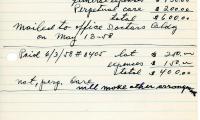 funeral expenses $ 150.00
Perpetual care $ 200.00
total $ 600.00
Mailed to office Doctors Bldg
on May 13-58
Paid 6/3/58 #8405 lot $ 250.00
expenses $ 150.00
total $ 400.00
not, perp. care
will make other arrangem